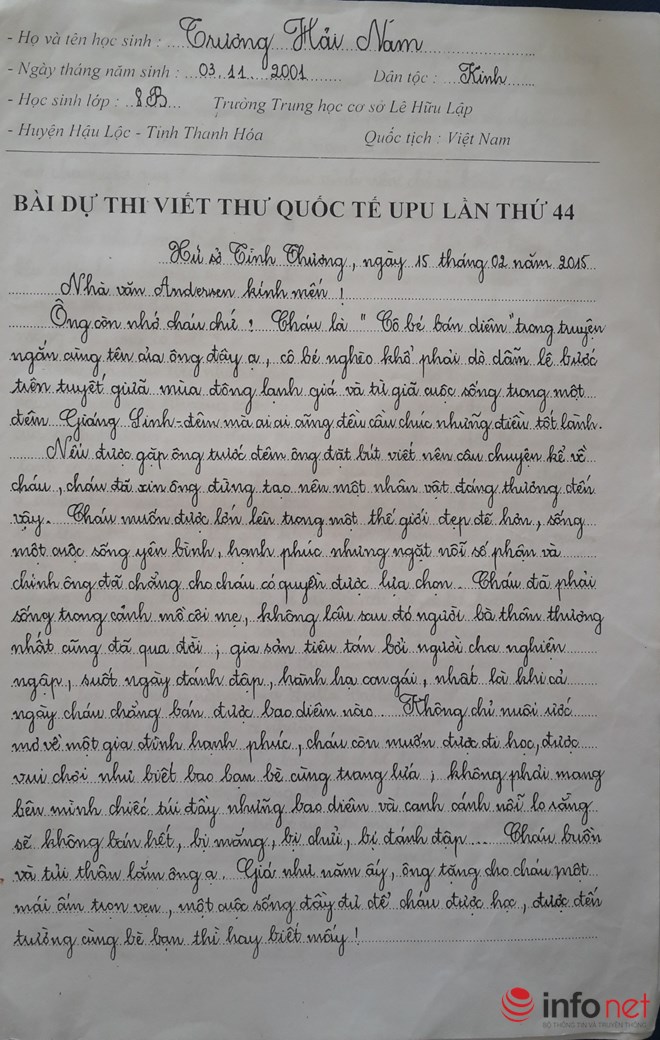 - Họ và tên học sinh : Trương Hải Nám
- Ngày tháng năm sinh : 03.11.2001 Dân tộc : Kinh
- Học sinh lớp : 8B Trường Trung học cơ sở Lê Hữu Lập
- Huyện Hậu Lộc - Tỉnh Thanh Hóa Quốc tịch : Việt Nam
BÀI DỰ THI VIẾT THƯ QUỐC TẾ UPU LẦN THỨ 44
Xứ sở Tình Thương, ngày 15 tháng 02 năm 2015
Nhà văn Andersen kính mến !
Ông còn nhớ cháu chứ ! Cháu là " Cô bé bán diêm" trong truyện
ngắn cùng tên của ông đây ạ, cô bé nghèo khổ phải dò dẫm lê bước
trên tuyết giữa mùa đông lạnh giá và từ giã cuộc sống trong một
đêm Giáng Sinh - đêm mà ai ai cũng đều cầu chúc những điều tốt lành.
Nếu được gặp ông trước đêm ông đặt bút viết nên câu chuyện kể về
cháu, cháu đã xin ông đừng tạo nên một nhân vật đáng thương đến
vậy. Cháu muốn được lớn lên trong một thế giới đẹp đẽ hơn, sống
một cuộc sống yên bình, hạnh phúc nhưng ngặt nỗi số phận và
chính ông đã chẳng cho cháu có quyền được lựa chọn. Cháu đã phải
sống trong cảnh mồ côi mẹ, không lâu sau đó người bà thân thương
nhất cũng đã qua đời ; gia sản tiêu tán bởi người cha nghiện
ngập, suốt ngày đánh đập, hành hạ con gái, nhất là khi cả
ngày cháu chẳng bán được bao diêm nào. Không chỉ nuôi ước
mơ về một gia đình hạnh phúc, cháu còn muốn được đi học, được
vui chơi như biết bao bạn bè cùng trang lứa ; không phải mang
bên mình chiếc túi đầy những bao diêm và canh cánh nỗi lo rằng
sẽ không bán hết, bị mắng, bị chửi, bị đánh đập ... Cháu buồn
và tủi thân lắm ông ạ. Giá như năm ấy, ông tặng cho cháu một
mái ấm trọn vẹn, một cuộc sống đầy đủ để cháu được học, được đến
trường cùng bè bạn thì hay biết mấy !
infonet
BỘ THÔNG TIN VÀ TRUYỀN THÔNG